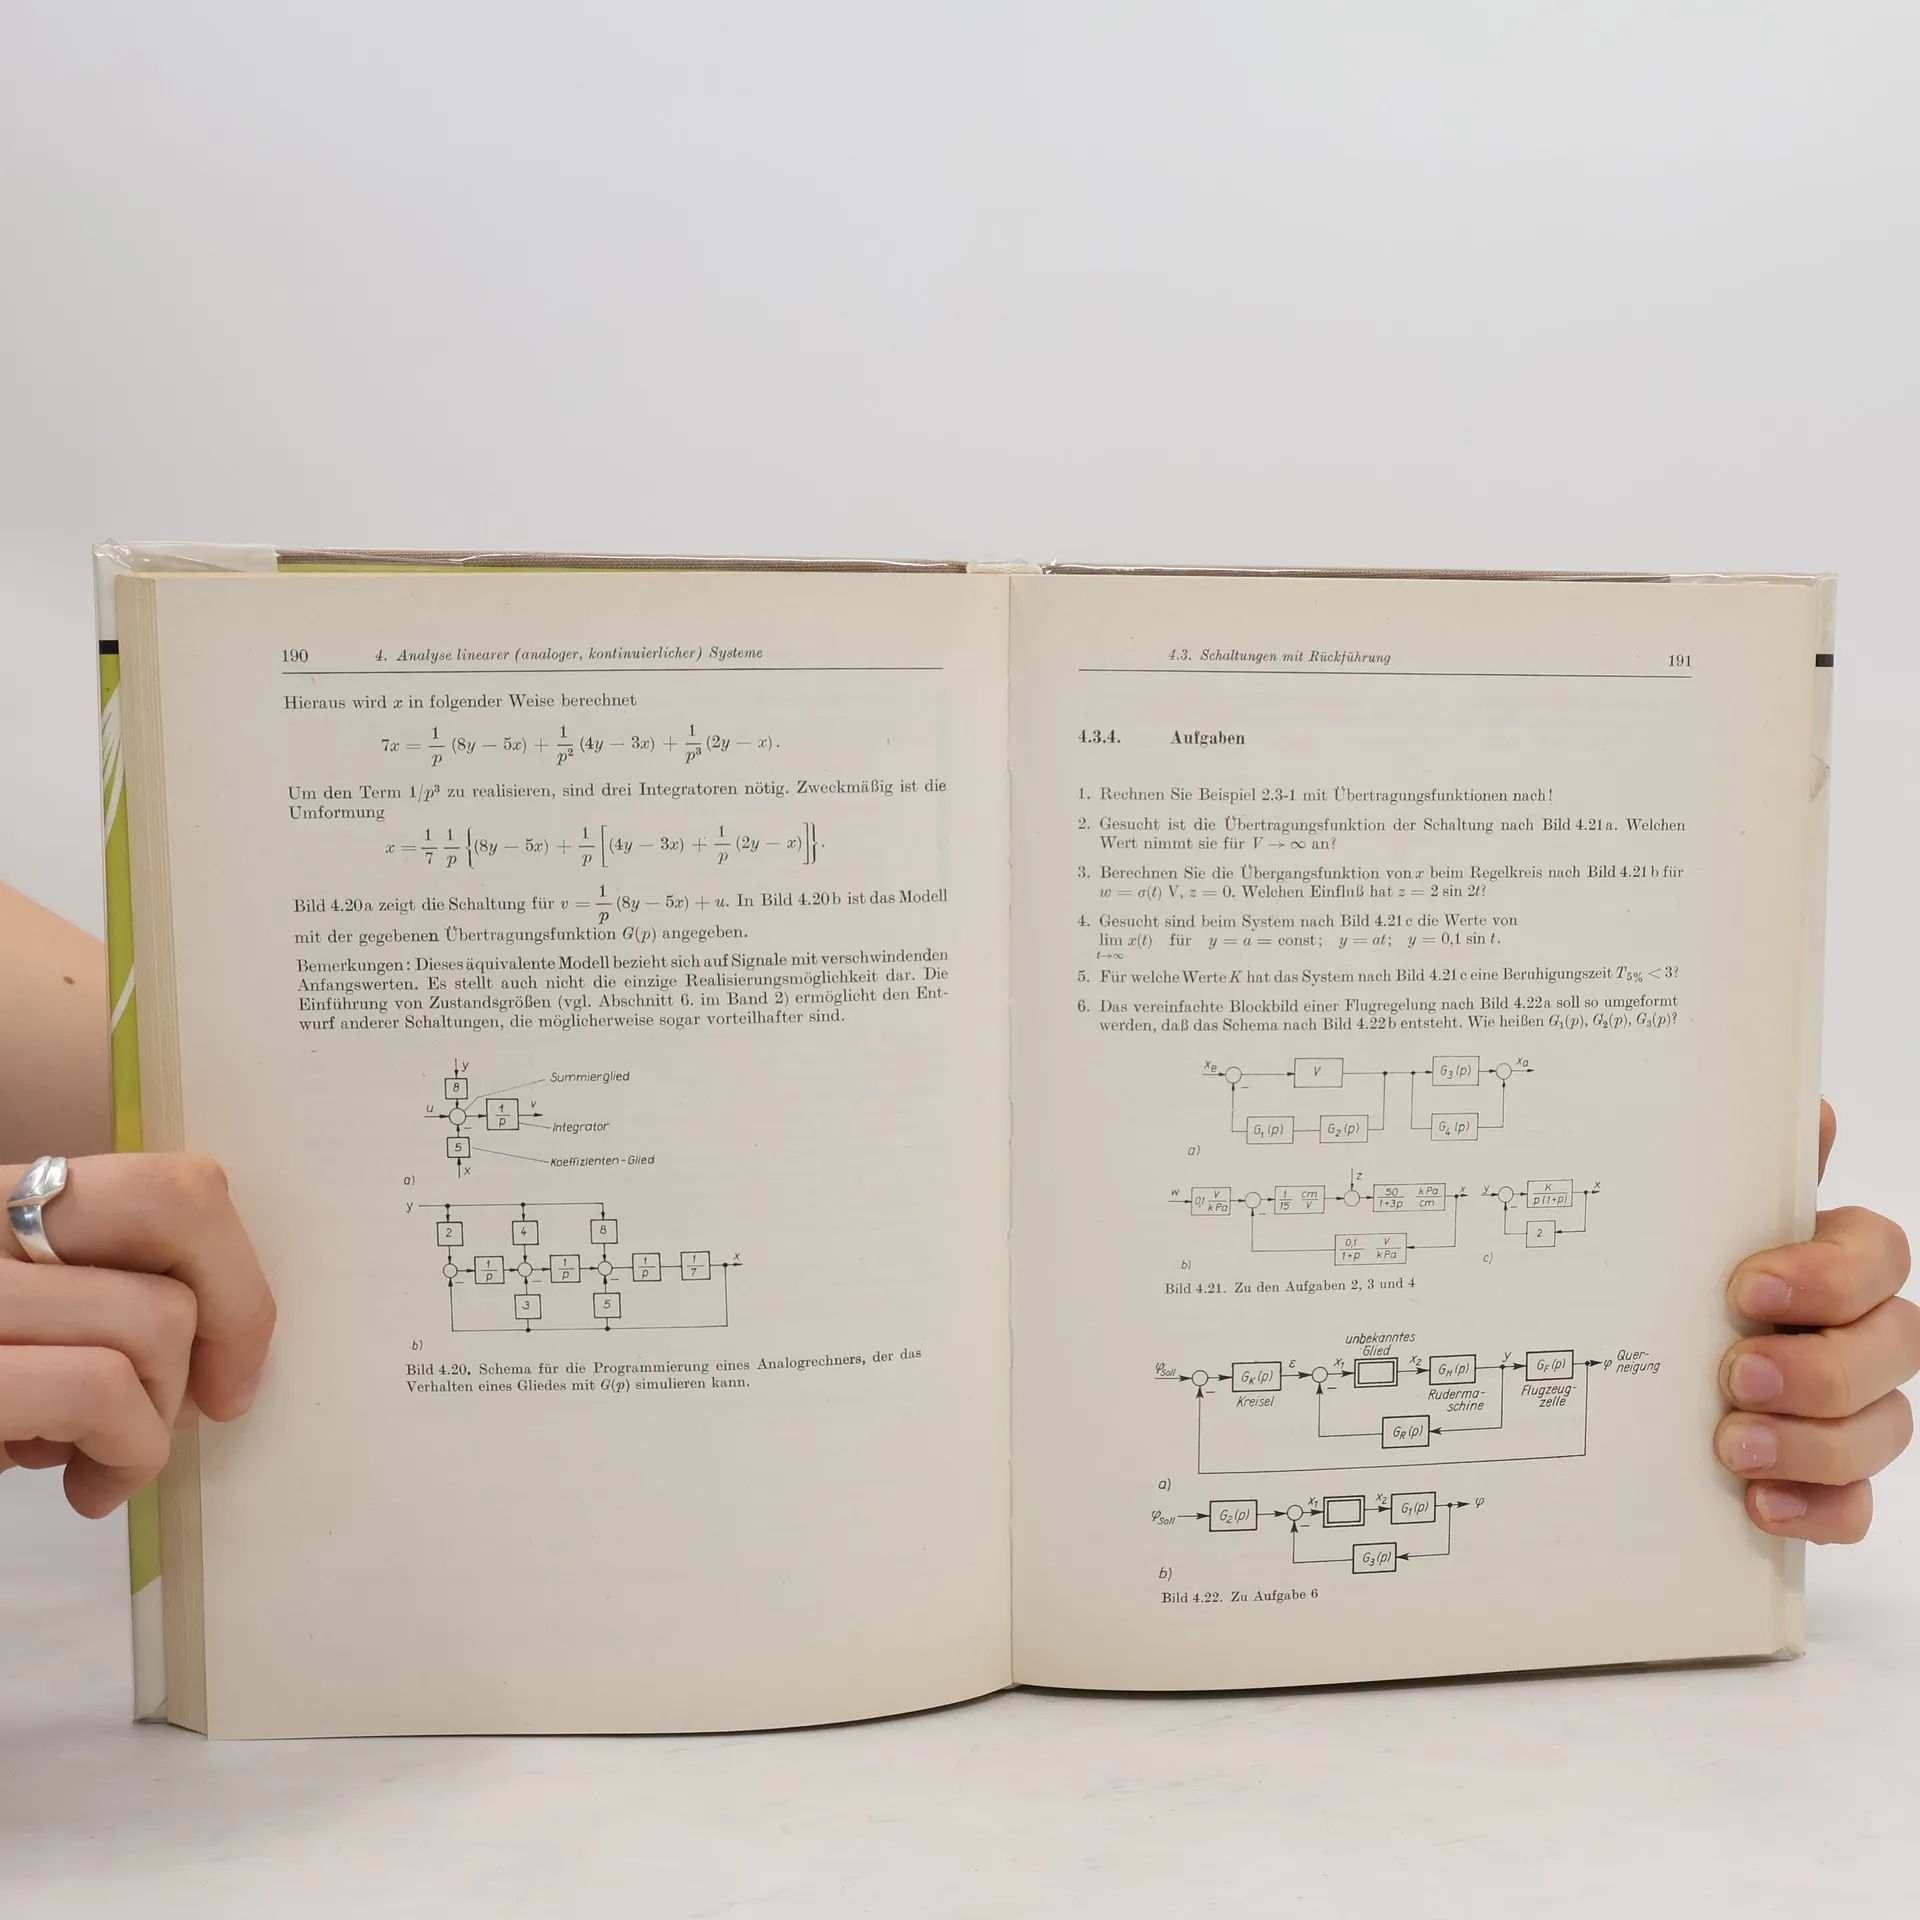 190 4. Analyse linearer (analoger, kontinuierlicher) Systeme
Hieraus wird x in folgender Weise berechnet
7x = 1/p (8y − 5x) + 1/p² (4y − 3x) + 1/p³ (2y − x).
Um den Term 1/p³ zu realisieren, sind drei Integratoren nötig. Zweckmäßig ist die
Umformung
x = 1/7 1/p {(8y − 5x) + 1/p [(4y − 3x) + 1/p (2y − x)]}.
Bild 4.20a zeigt die Schaltung für v = 1/p (8y − 5x) + u. In Bild 4.20b ist das Modell
mit der gegebenen Übertragungsfunktion G(p) angegeben.
Bemerkungen: Dieses äquivalente Modell bezieht sich auf Signale mit verschwindenden
Anfangswerten. Es stellt auch nicht die einzige Realisierungsmöglichkeit dar. Die
Einführung von Zustandsgrößen (vgl. Abschnitt 6. im Band 2) ermöglicht den Ent-
wurf anderer Schaltungen, die möglicherweise sogar vorteilhafter sind.
y
8 Summierglied
u 1/p v
− Integrator
5
Koeffizienten-Glied
x
a)
y
2 4 8
1/p 1/p 1/p 1/7 x
− − −
3 5
b)
Bild 4.20. Schema für die Programmierung eines Analogrechners, der das
Verhalten eines Gliedes mit G(p) simulieren kann.
4.3. Schaltungen mit Rückführung 191
4.3.4. Aufgaben
1. Rechnen Sie Beispiel 2.3-1 mit Übertragungsfunktionen nach!
2. Gesucht ist die Übertragungsfunktion der Schaltung nach Bild 4.21a. Welchen
Wert nimmt sie für V → ∞ an?
3. Berechnen Sie die Übergangsfunktion von x beim Regelkreis nach Bild 4.21b für
w = σ(t) V, z = 0. Welchen Einfluß hat z = 2 sin 2t?
4. Gesucht sind beim System nach Bild 4.21c die Werte von
lim x(t) für y = a = const; y = at; y = 0,1 sin t.
t→∞
5. Für welche Werte K hat das System nach Bild 4.21c eine Beruhigungszeit T5% < 3?
6. Das vereinfachte Blockbild einer Flugregelung nach Bild 4.22a soll so umgeformt
werden, daß das Schema nach Bild 4.22b entsteht. Wie heißen G1(p), G2(p), G3(p)?
xe V G3(p) xa
−
G1(p) G2(p) G4(p)
a)
z
w 0,1 V/kPa 1/15 cm/V 50/1+3p kPa/cm x y K/p(1+p) x
− −
2
0,1/1+p V/kPa
b) c)
Bild 4.21. Zu den Aufgaben 2, 3 und 4
unbekanntes
Glied
φSoll GK(p) ε x1 x2 GH(p) y GF(p) φ Quer-
neigung
− Kreisel − Ruderma-
schine Flugzeug-
zelle
GR(p)
a)
φSoll G2(p) x1 x2 G1(p) φ
−
G3(p)
b)
Bild 4.22. Zu Aufgabe 6